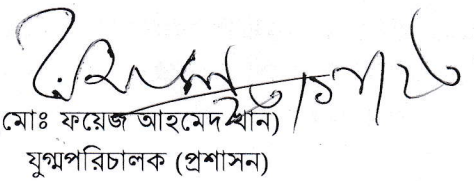 মোঃ ফয়েজ আহমেদ খান)
যুগ্মপরিচালক (প্রশাসন)